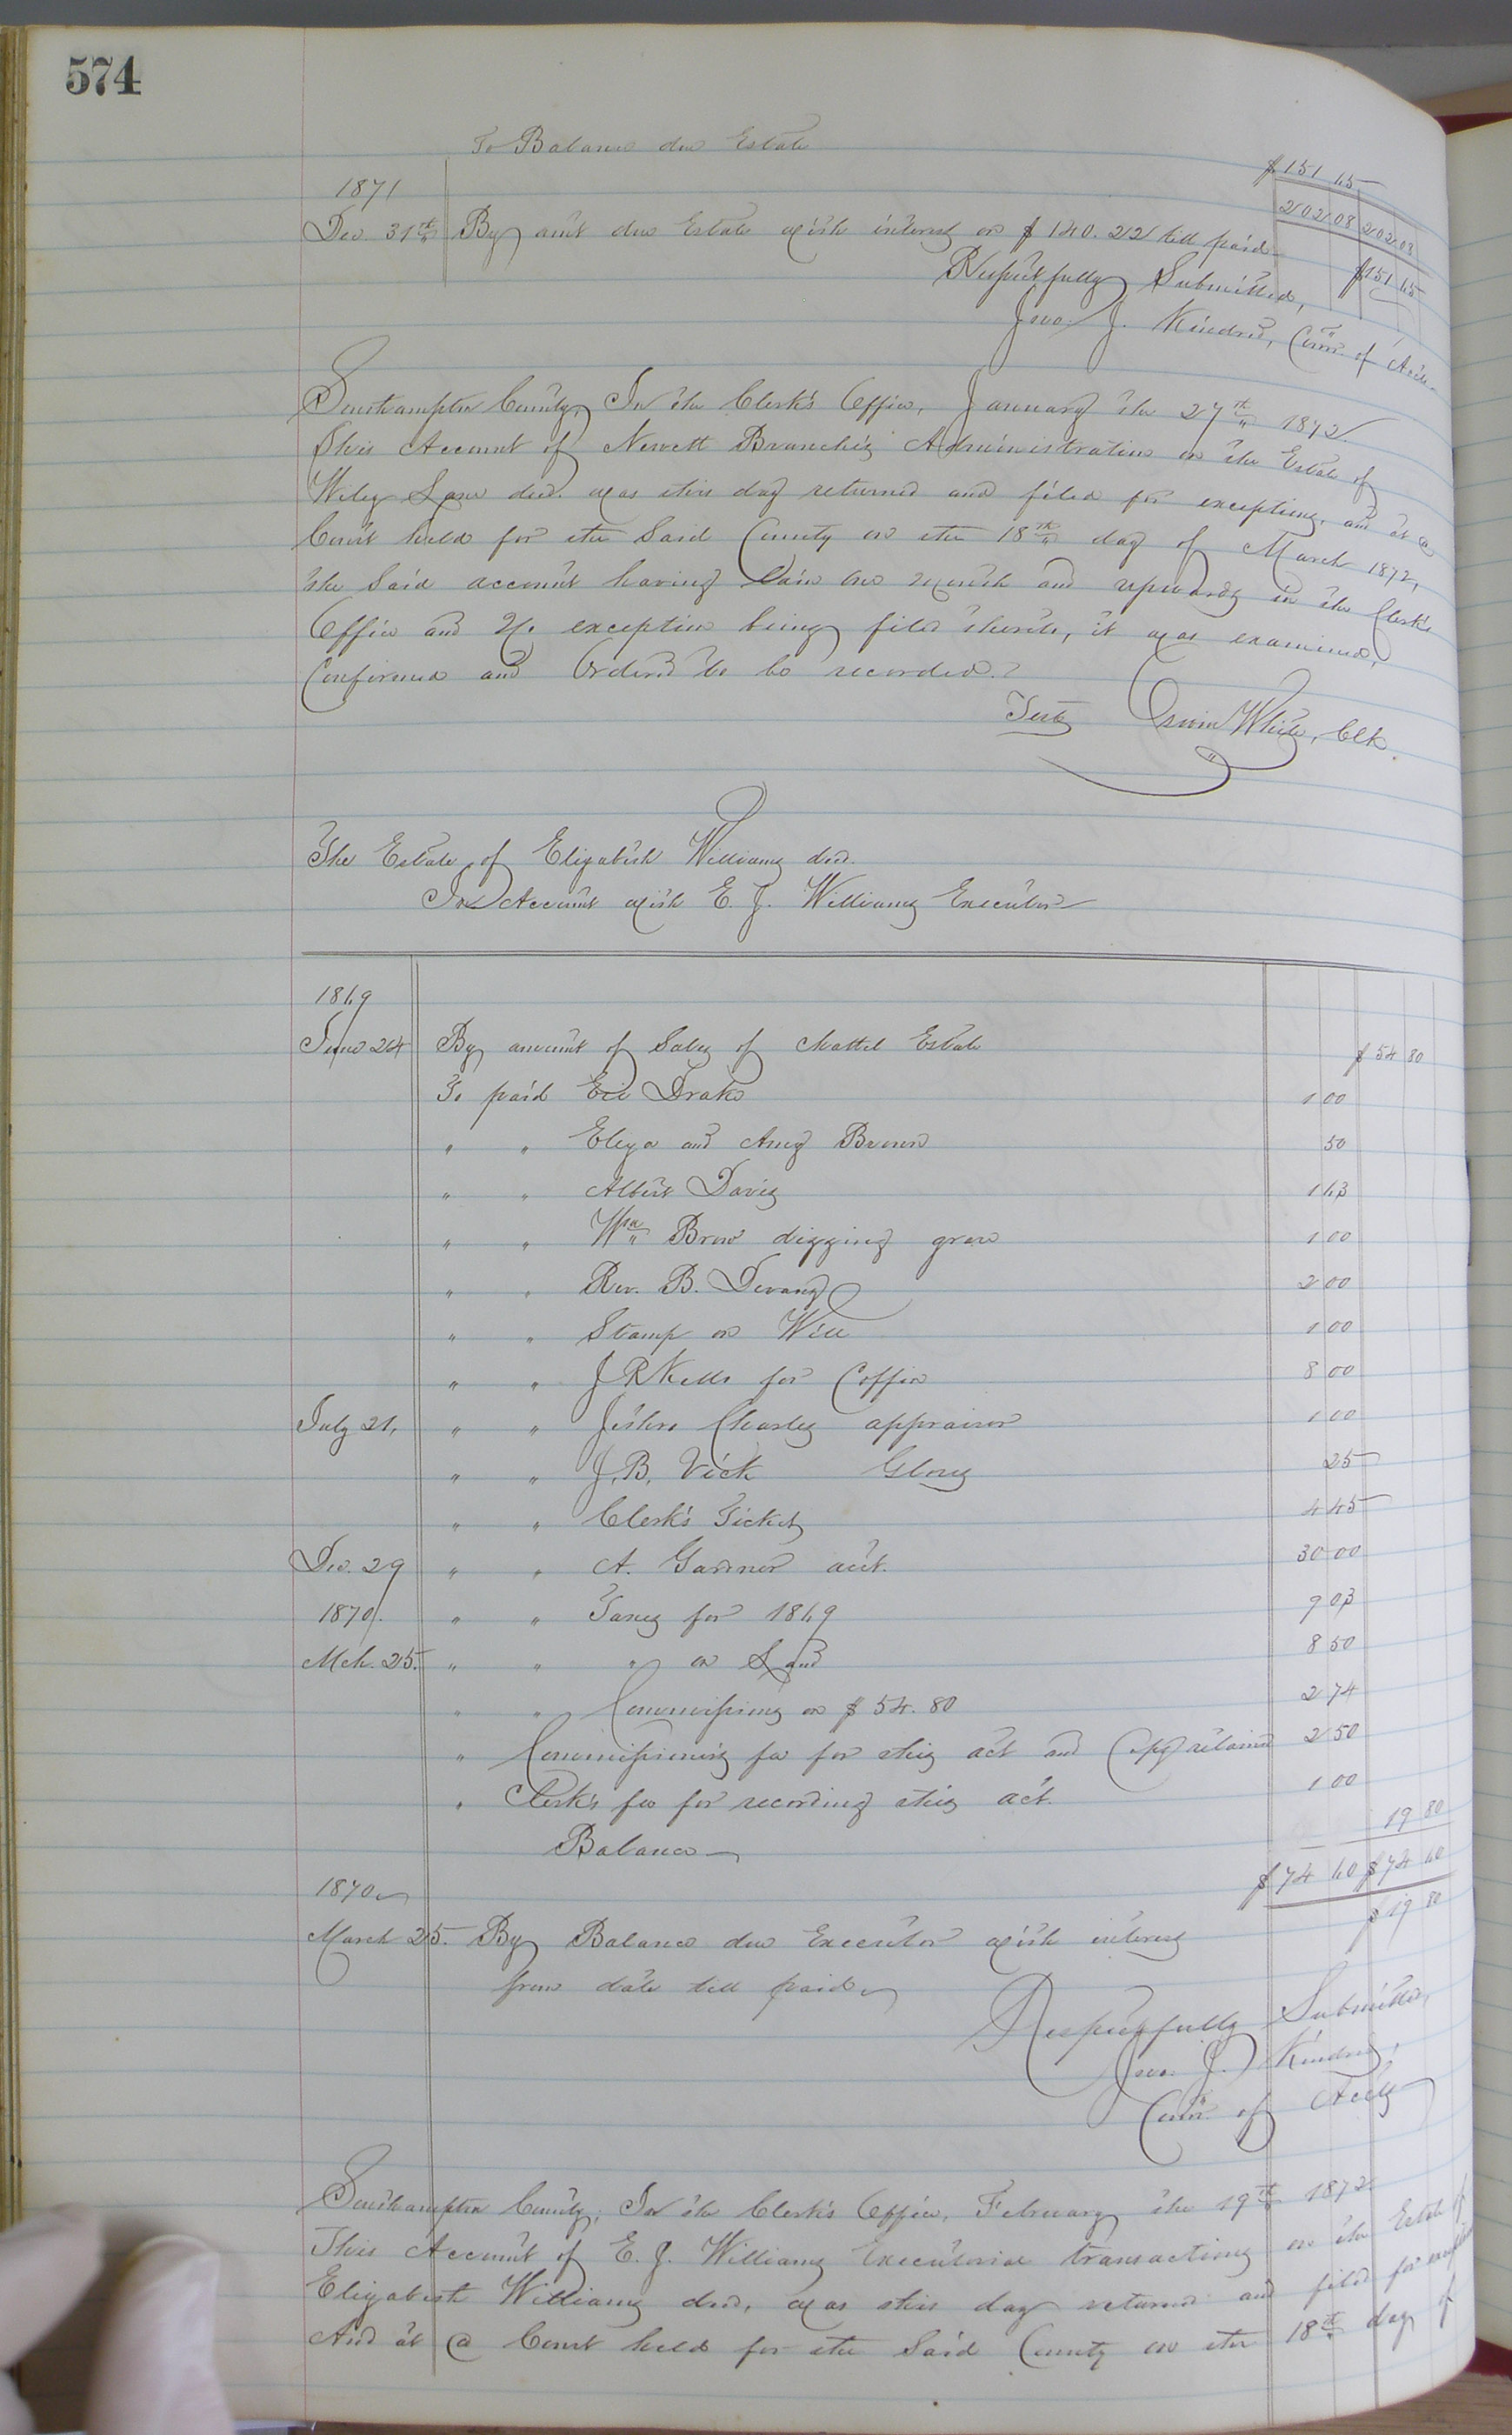 574
To Balance due Estate $151 65
1871 202 08 202 08
Dec. 31st By amt due Estate with interest on $140.22 till paid $151 65
Respectfully Submitted,
Jno. J. Kindred, Comr. of Accts
Southampton County, In the Clerk's Office, January the 27th 1872.
This Account of Newett Branch's Administration on the Estate of
Wiley Lane decd. was this day returned and filed for exceptions, and at a
Court held for the Said County on the 18th day of March 1872,
the Said account having lain one month and upwards in the Clerk's
Office and No exception being filed thereto, it was examined,
Confirmed and Ordered to be recorded.
Teste Orwin White, Clk.
The Estate of Elizabeth Williams decd.
In Account with E. J. Williams Executor
1869
June 24 By amount of Sales of Chattel Estate $54 80
To paid Eli Drake 1 00
" " Eliza and Amy Brown 50
" " Albert Davis 1 63
" " Wm Brow digging grave 1 00
" " Rev. B. Devany 2 00
" " Stamp on Will 1 00
" " J R Kello for Coffin 8 00
July 21, " " Jethro Charles appraiser 1 00
" " J. B. Vick Gloves 25
" " Clerk's Ticket 4 45
Dec. 29 " " A. Gardner acct. 30 00
1870. " " Taxes for 1869 9 03
Mch. 25. " " " on Land 8 50
" " Commissions on $54.80 2 74
" Commissioner's fee for this act and Copy retained 2 50
" Clerk's fee for recording this act. 1 00
Balance 19 80
1870 $74 60 $74 60
March 25. By Balance due Executor with interest $19 80
from date till paid
Respectfully Submitted,
Jno. J. Kindred,
Comr. of Accts
Southampton County, In the Clerk's Office, February the 19th 1872
This Account of E. J. Williams Executorial transactions on the Estate of
Elizabeth Williams decd, was this day returned and filed for exceptions
And at a Court held for the Said County on the 18th day of